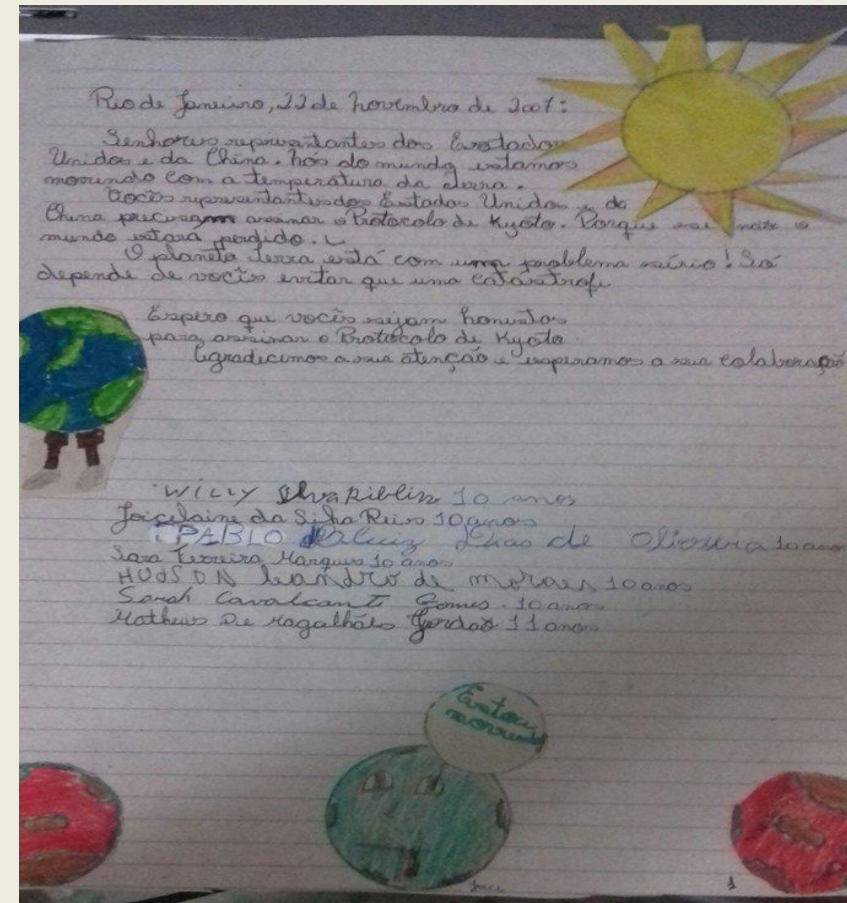 Rio de Janeiro, 22 de novembro de 2007:
Senhores representantes dos Evotados
Unidos e da China. nós do mundo estamos
morrendo com a temperatura da terra.
Vocês representantes dos Estados Unidos e da
China precisam assinar o Protocolo de Kyoto. Porque se não o
mundo estará perdido.
O planeta terra está com um problema sério! Só
depende de vocês evitar que uma catástrofe
Espero que vocês sejam honestos
para assinar o Protocolo de Kyoto.
Agradecimos a sua atenção e esperamos a sua colaboração
Willy Silva 10 anos
Joicelaine da Silva Reis 10 anos
PABLO Luiz de Oliveira 10 anos
Sara Ferreira Marques 10 anos
HUDSON Leandro de moraes 10 anos
Sarah Cavalcanti Gomes. 10 anos
Matheus De Magalhães 11 anos
Estou
morrendo
1